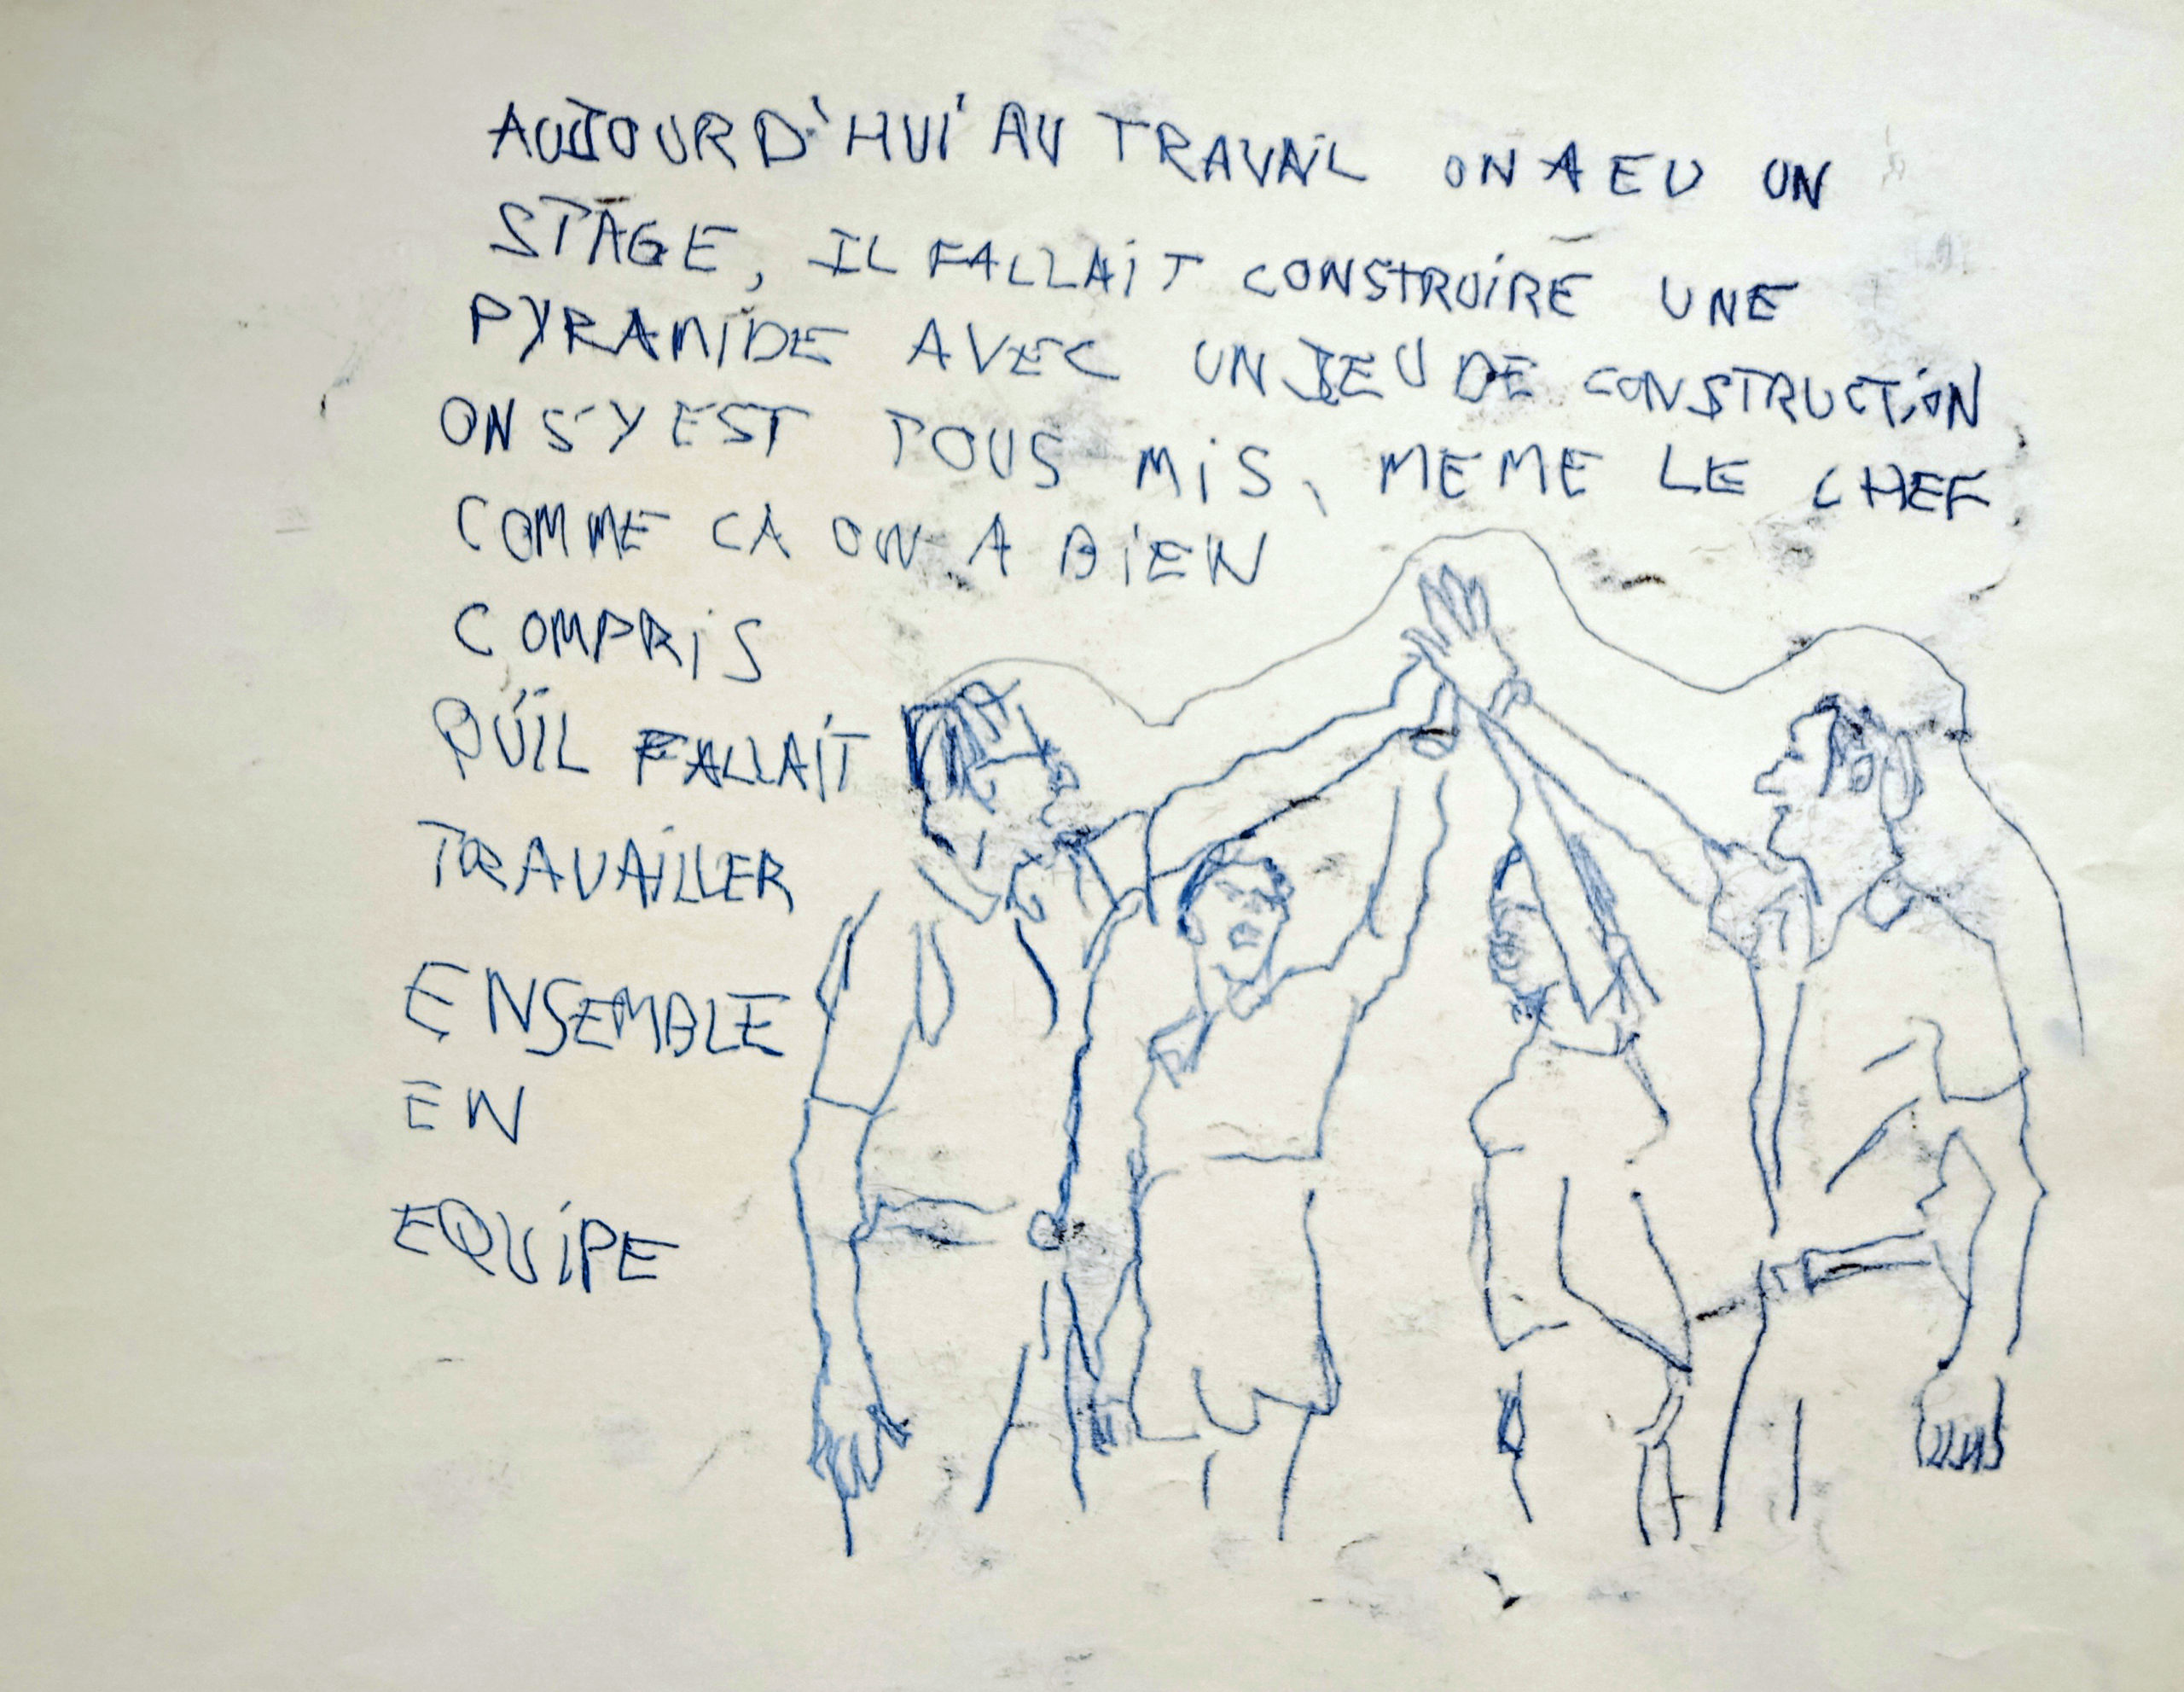 AUJOURD'HUI AU TRAVAIL ON A EU UN
STAGE, IL FALLAIT CONSTRUIRE UNE
PYRAMIDE AVEC UN JEU DE CONSTRUCTION
ON S'Y EST TOUS MIS, MEME LE CHEF,
COMME CA ON A BIEN
COMPRIS
QU'IL FALLAIT
TRAVAILLER
ENSEMBLE
EN
EQUIPE